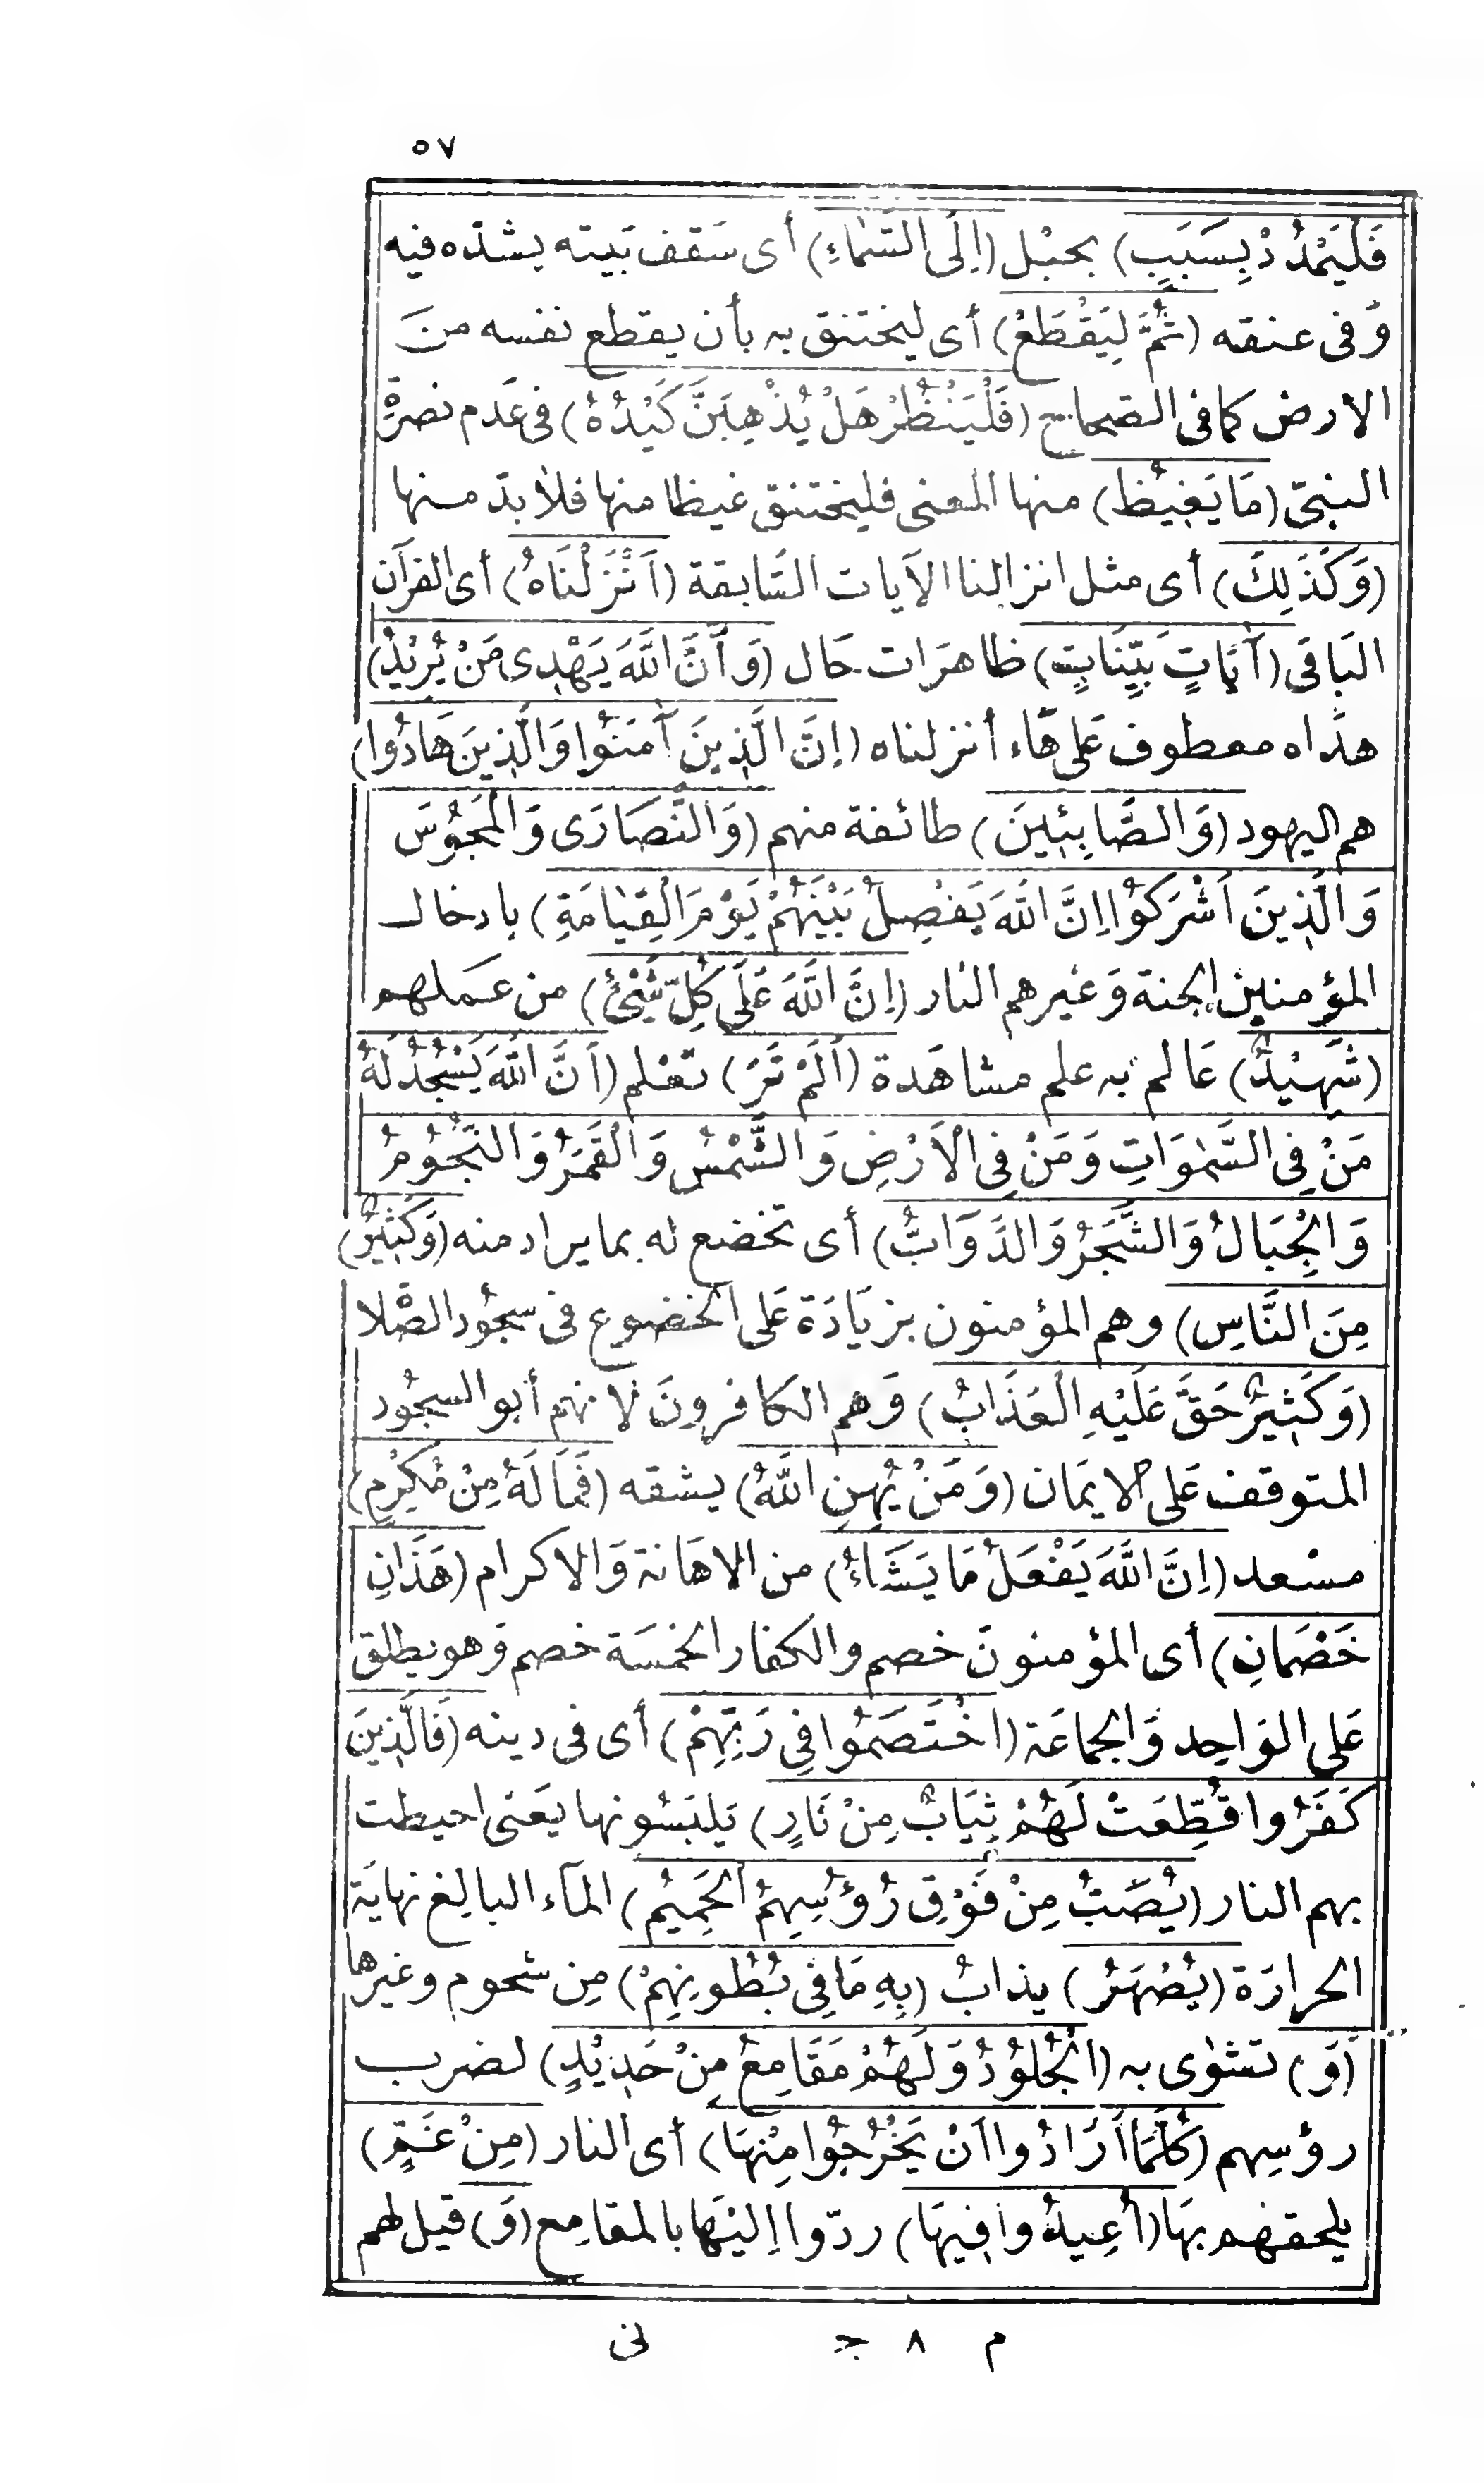 ٥٧
فَلْيَمْدُدْ بِسَبَبٍ) بحبْل (اِلَى السَّمَاءِ) أى سَقف بَيته يشدّه فيه
وَفى عنقه (ثُمَّ لِيَقْطَعْ) أى ليختنق به بأن يقطع نفسه منَ
الأرض كما فى الصّحاح (فَلْيَنْظُرْ هَلْ يُذْهِبَنَّ كَيْدُهُ) فى عَدَم نصرَةِ
النبىّ (مَا يَغِيْظُ) منها المعنى فليختنق غيظا منها فلا بدّ منها
(وَكَذَلِكَ) أى مثل انزالنا الآيات السَّابقة (اَنْزَلْنَاهُ) أى القرآن
البَاقى (آيَاتٍ بَيِّنَاتٍ) ظاهرَات حَال (وَأَنَّ اللَّهَ يَهْدِى مَنْ يُرِيْدُ)
هدَاه معطوف عَلى هَاء أنزلناه (إِنَّ الَّذِينَ آمَنُوا وَالَّذِينَ هَادُوا)
هم اليهود (وَالصَّابِئِينَ) طائفة منهم (وَالنَّصَارَى وَالْمَجُوْسَ
وَالَّذِينَ اَشْرَكُوْا اِنَّ اللَّهَ يَفْصِلُ بَيْنَهُمْ يَوْمَ الْقِيٰامَةِ) بادخال
المؤمنين الجنة وَغيرهم النار (اِنَّ اللَّهَ عَلَى كُلِّ شَيْئٍ) من عَملهم
(شَهِيْدٌ) عَالم به علم مشاهَدة (اَلَمْ تَرَ) تعْلم (اَنَّ اللَّهَ يَسْجُدُ لَهُ
مَنْ فِى السَّمٰوَاتِ وَمَنْ فِى الْاَرْضِ وَالشَّمْسُ وَالْقَمَرُ وَالنُّجُوْمُ
وَالْجِبَالُ وَالشَّجَرُ وَالدَّوَابُّ) أى تخضع له بما يراد منه (وَكَثِيْرٌ)
مِنَ النَّاسِ) وهم المؤمنون بزيَادَة عَلى الخضوع فى سجُود الصّلاة
(وَكَثِيْرٌ حَقَّ عَلَيْهِ الْعَذَابُ) وَهم الكافرونَ لانهم أبوا السجُود
المتوقف عَلى الايمَان (وَمَنْ يُهِنِ اللَّهُ) يشقه (فَمَا لَهُ مِنْ مُكْرِمٍ)
مسْعد (اِنَّ اللَّهَ يَفْعَلُ مَا يَشَاءُ) من الاهَانة وَالاكرام (هَذَانِ
خَصْمَانِ) أى المؤمنونَ خصم والكفار الخمسَة خصم وَهو يطلق
عَلى الوَاحِد وَالجمَاعَة (اخْتَصَمُوا فِى رَبِّهِمْ) أى فى دينه (فَالَّذِينَ
كَفَرُوا قُطِّعَتْ لَهُمْ ثِيَابٌ مِنْ نَارٍ) يَلبَسُونها يعَنى احيطت
بهم النار (يُصَبُّ مِنْ فَوْقِ رُؤُسِهِمُ الْحَمِيْمُ) المآء البالِغ نهايَة
الحرارَة (يُصْهَرُ) يذابُ (بِهِ مَا فِى بُطُونِهِمْ) مِن شحوم وغيرها
(وَ) تشوٰى به (الْجُلُوْدُ وَلَهُمْ مَقَامِعُ مِنْ حَدِيْدٍ) لضرب
رؤسِهم (كُلَّمَا اَرَادُوا اَنْ يَخْرُجُوا مِنْهَا) أى النار (مِنْ غَمٍّ)
يلحقهم بهَا (أُعِيدُوا فِيهَا) ردّوا اِليْهَا بالمقامِع (وَ) قيل لهم
م ٨ جـ نى